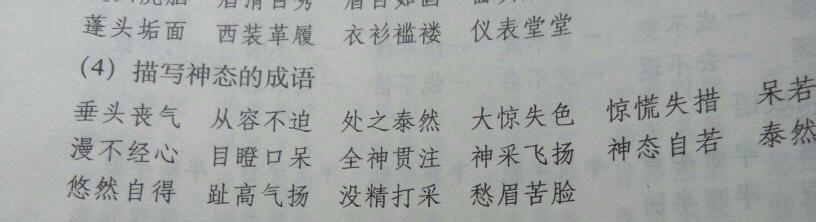 蓬头垢面 西装革履 衣衫褴褛 仪表堂堂
(4) 描写神态的成语
垂头丧气 从容不迫 处之泰然 大惊失色 惊慌失措 呆若
漫不经心 目瞪口呆 全神贯注 神采飞扬 神态自若 泰然
悠然自得 趾高气扬 没精打采 愁眉苦脸